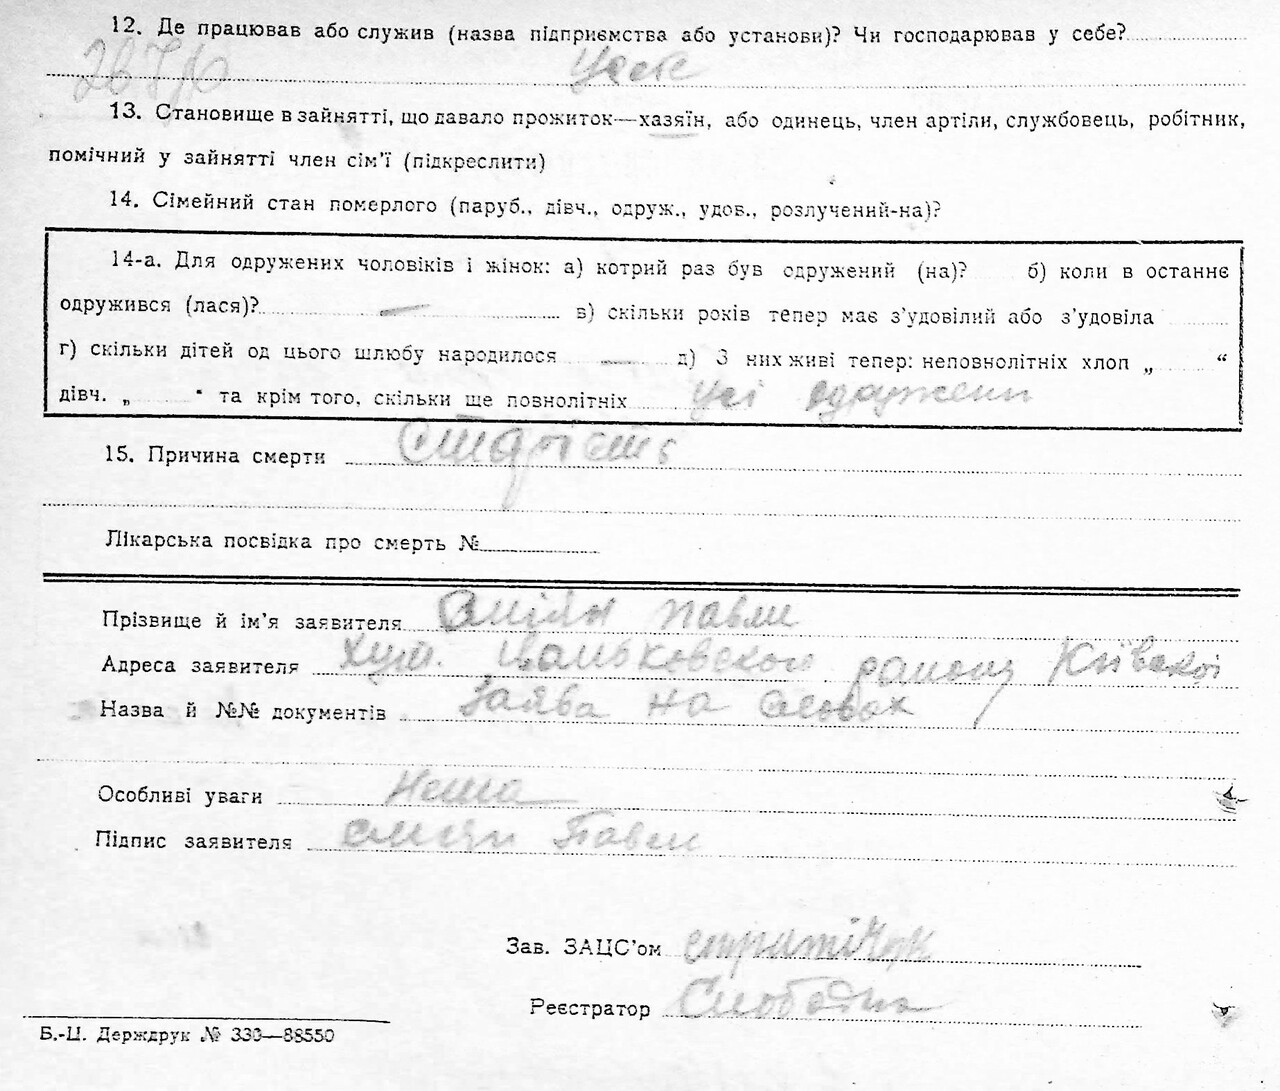 12. Де працював або служив (назва підприємства або установи)? Чи господарював у себе?
13. Становище в зайнятті, що давало прожиток—хазяїн, або одинець, член артіли, службовець, робітник,
помічний у зайнятті член сім'ї (підкреслити)
14. Сімейний стан померлого (паруб., дівч., одруж., удов., розлучений-на)?
14-а. Для одружених чоловіків і жінок: а) котрий раз був одружений (на)? б) коли в останнє
одружився (лася)? — в) скільки років тепер має з'удовілий або з'удовіла
г) скільки дітей од цього шлюбу народилося — д) З них живі тепер: неповнолітніх хлоп „ “
дівч. „ “ та крім того, скільки ще повнолітніх усі одружени
15. Причина смерти старість
Лікарська посвідка про смерть №
Прізвище й ім'я заявителя Павли
Адреса заявителя Хут. району Київской
Назва й №№ документів Заява на словах
Особливі уваги Нема
Підпис заявителя Павли
Зав. ЗАЦС'ом
Реєстратор Слободян
Б.-Ц. Держдрук № 330—88550